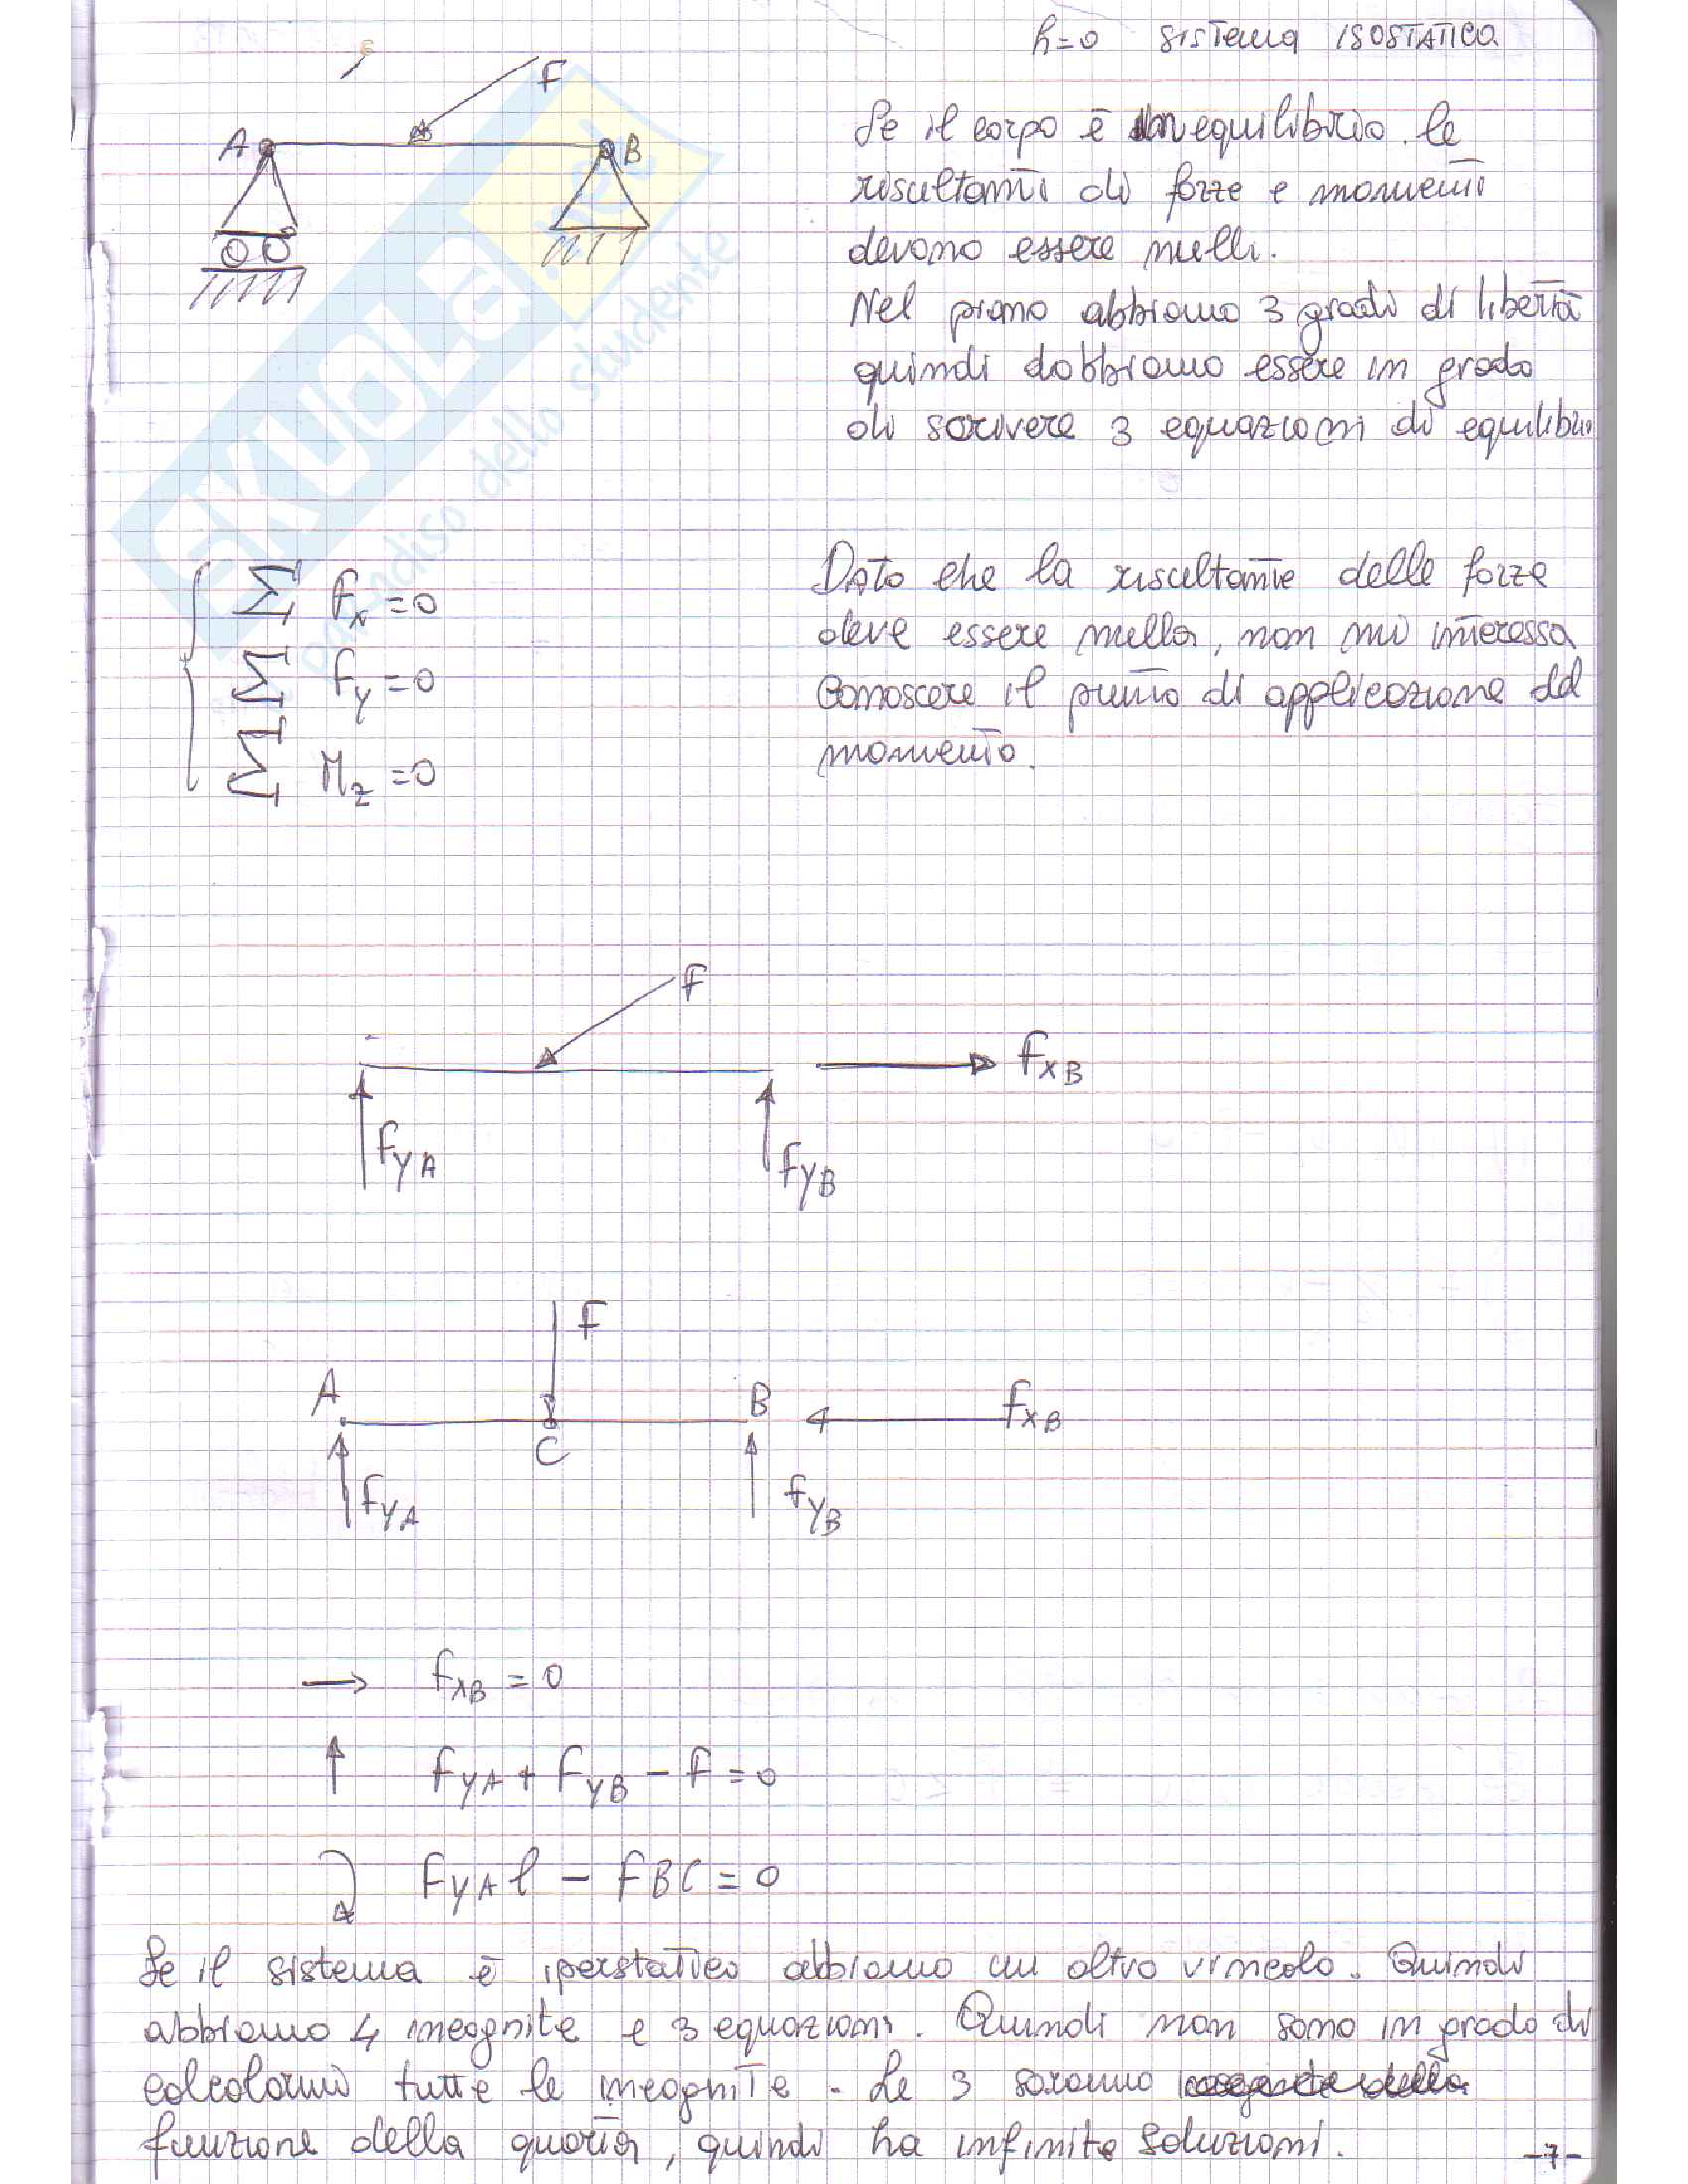 h=0 sistema ISOSTATICO
F
A
B
Se il corpo è in equilibrio le
risultanti di forze e momenti
devono essere nulli.
Nel piano abbiamo 3 gradi di libertà
quindi dobbiamo essere in grado
di scrivere 3 equazioni di equilibri
SKUOLA.net
paradiso dello studente
Σ Fx = 0
Σ Fy = 0
Σ Mz = 0
Dato che la risultante delle forze
deve essere nulla, non mi interessa
conoscere il punto di applicazione del
momento.
F
FxB
FyA
FyB
F
A
B
FxB
C
FyA
FyB
→ FxB = 0
↑ FyA + FyB - F = 0
FyA l - F BC = 0
Se il sistema è iperstatico abbiamo un altro vincolo. Quindi
abbiamo 4 incognite e 3 equazioni. Quindi non sono in grado di
calcolarmi tutte le incognite. Le 3 saranno
funzione della quarta, quindi ha infinite soluzioni.
-7-